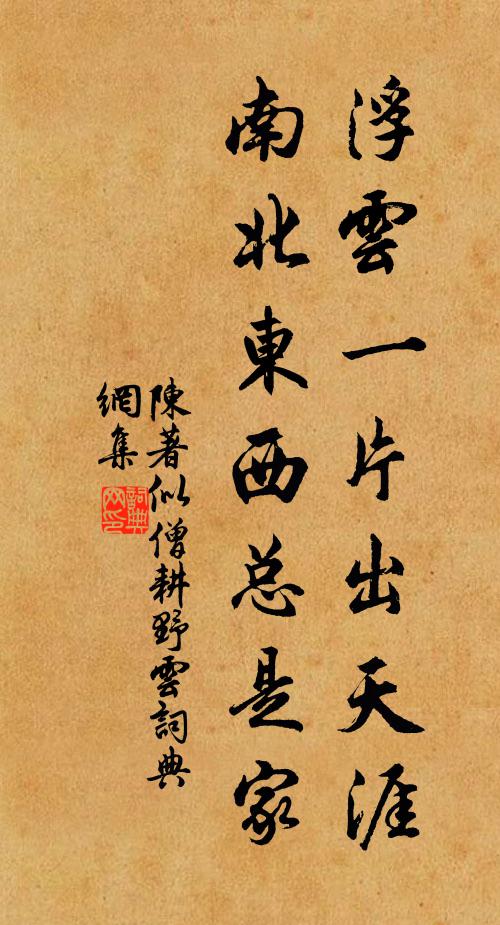 浮雲一片出天涯
南北東西总是家
陳著似僧耕野雲詞典
網集
詞典
网印